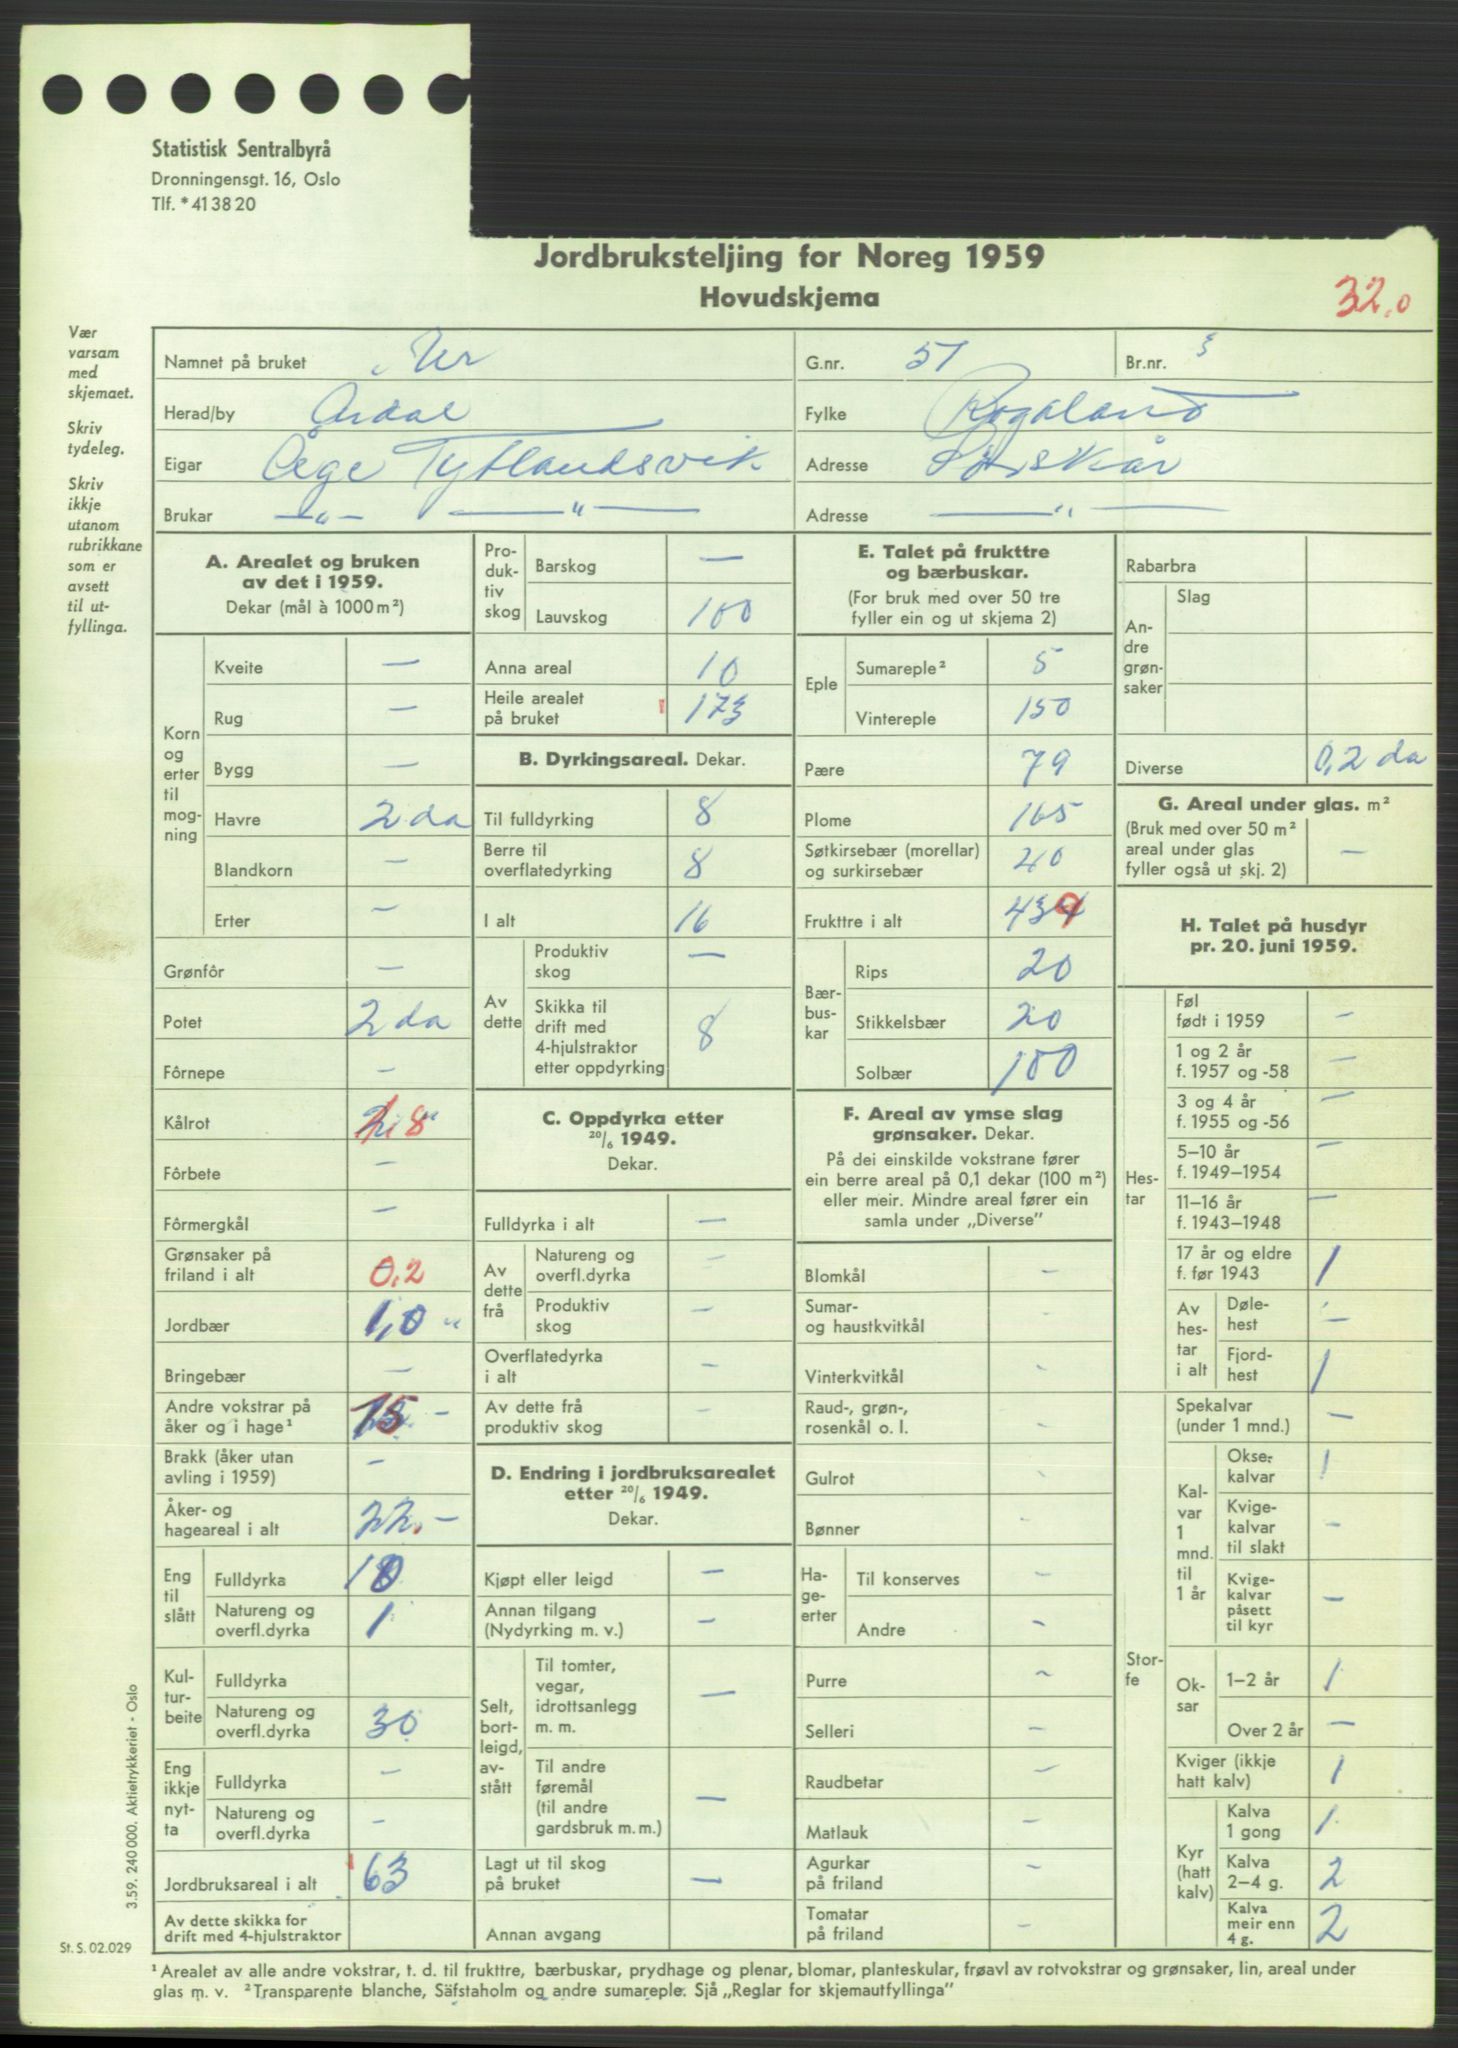 Statistisk Sentralbyrå
Dronningensgt. 16, Oslo
Tlf. * 41 38 20
Jordbruksteljing for Noreg 1959
Hovudskjema
32,0
Vær
varsam
med
skjemaet.
Skriv
tydeleg.
Skriv
ikkje
utanom
rubrikkane
som er
avsett
til ut-
fyllinga.
Namnet på bruket Ur G.nr. 51 Br.nr. 3
Herad/by Årdal Fylke Rogaland
Eigar Åge Tytlandsvik Adresse
Brukar —„— —„— Adresse —„—
A. Arealet og bruken
av det i 1959.
Dekar (mål à 1000 m²)
Korn og erter til mogning
Kveite —
Rug —
Bygg —
Havre 2 da
Blandkorn —
Erter —
Grønfôr —
Potet 2 da
Fôrnepe —
Kålrot 1,8
Fôrbete —
Fôrmergkål —
Grønsaker på
friland i alt 0,2
Jordbær 1,0 „
Bringebær —
Andre vokstrar på
åker og i hage¹ 15 —
Brakk (åker utan
avling i 1959) —
Åker- og
hageareal i alt 22. —
Eng til slått
Fulldyrka 10
Natureng og
overfl.dyrka 1
Kul-
tur-
beite
Fulldyrka
Natureng og
overfl.dyrka 30
Eng
ikkje
nyt-
ta
Fulldyrka —
Natureng og
overfl.dyrka —
Jordbruksareal i alt 63
Av dette skikka for
drift med 4-hjulstraktor
Pro-
duk-
tiv
skog
Barskog —
Lauvskog 100
Anna areal 10
Heile arealet
på bruket 173
B. Dyrkingsareal. Dekar.
Til fulldyrking 8
Berre til
overflatedyrking 8
I alt 16
Av
dette
Produktiv
skog —
Skikka til
drift med
4-hjulstraktor
etter oppdyrking 8
C. Oppdyrka etter
20/6 1949.
Dekar.
Fulldyrka i alt —
Av
dette
frå
Natureng og
overfl.dyrka —
Produktiv
skog —
Overflatedyrka
i alt —
Av dette frå
produktiv skog —
D. Endring i jordbruksarealet
etter 20/6 1949.
Dekar.
Kjøpt eller leigd —
Annan tilgang
(Nydyrking m. v.) —
Selt,
bort-
leigd,
av-
stått
Til tomter,
vegar,
idrottsanlegg
m. m. —
Til andre
føremål
(til andre
gardsbruk m. m.) —
Lagt ut til skog
på bruket —
Annan avgang
E. Talet på frukttre
og bærbuskar.
(For bruk med over 50 tre
fyller ein og ut skjema 2)
Eple
Sumareple² 5
Vintereple 150
Pære 79
Plome 165
Søtkirsebær (morellar)
og surkirsebær 40
Frukttre i alt 439
Bær-
bus-
kar
Rips 20
Stikkelsbær 20
Solbær 100
F. Areal av ymse slag
grønsaker. Dekar.
På dei einskilde vokstrane fører
ein berre areal på 0,1 dekar (100 m²)
eller meir. Mindre areal fører ein
samla under „Diverse"
Blomkål —
Sumar-
og haustkvitkål -
Vinterkvitkål -
Raud-, grøn-,
rosenkål o. l. -
Gulrot -
Bønner -
Ha-
ge-
erter
Til konserves —
Andre -
Purre —
Selleri —
Raudbetar —
Matlauk —
Agurkar
på friland —
Tomatar
på friland —
Rabarbra
An-
dre
grøn-
saker
Slag
Diverse 0,2 da
G. Areal under glas. m²
(Bruk med over 50 m²
areal under glas
fyller også ut skj. 2) —
H. Talet på husdyr
pr. 20. juni 1959.
Hes-
tar
Føl
født i 1959 —
1 og 2 år
f. 1957 og -58 —
3 og 4 år
f. 1955 og -56 —
5—10 år
f. 1949—1954 —
11—16 år
f. 1943—1948 —
17 år og eldre
f. før 1943 1
Av
hes-
tar
i alt
Døle-
hest —
Fjord-
hest 1
Stor-
fe
Spekalvar
(under 1 mnd.) —
Kal-
var
1
mnd.
til
1 år
Okse-
kalvar 1
Kvige-
kalvar
til slakt —
Kvige-
kalvar
påsett
til kyr —
Ok-
sar
1—2 år 1
Over 2 år —
Kviger (ikkje
hatt kalv) 1
Kyr
(hatt
kalv)
Kalva
1 gong 1
Kalva
2—4 g. 2
Kalva
meir enn
4 g. 2
3.59. 240 000. Aktietrykkeriet - Oslo
St. S. 02.029
¹ Arealet av alle andre vokstrar, t. d. til frukttre, bærbuskar, prydhage og plenar, blomar, planteskular, frøavl av rotvokstrar og grønsaker, lin, areal under
glas m. v. ² Transparente blanche, Säfstaholm og andre sumareple. Sjå „Reglar for skjemautfyllinga"